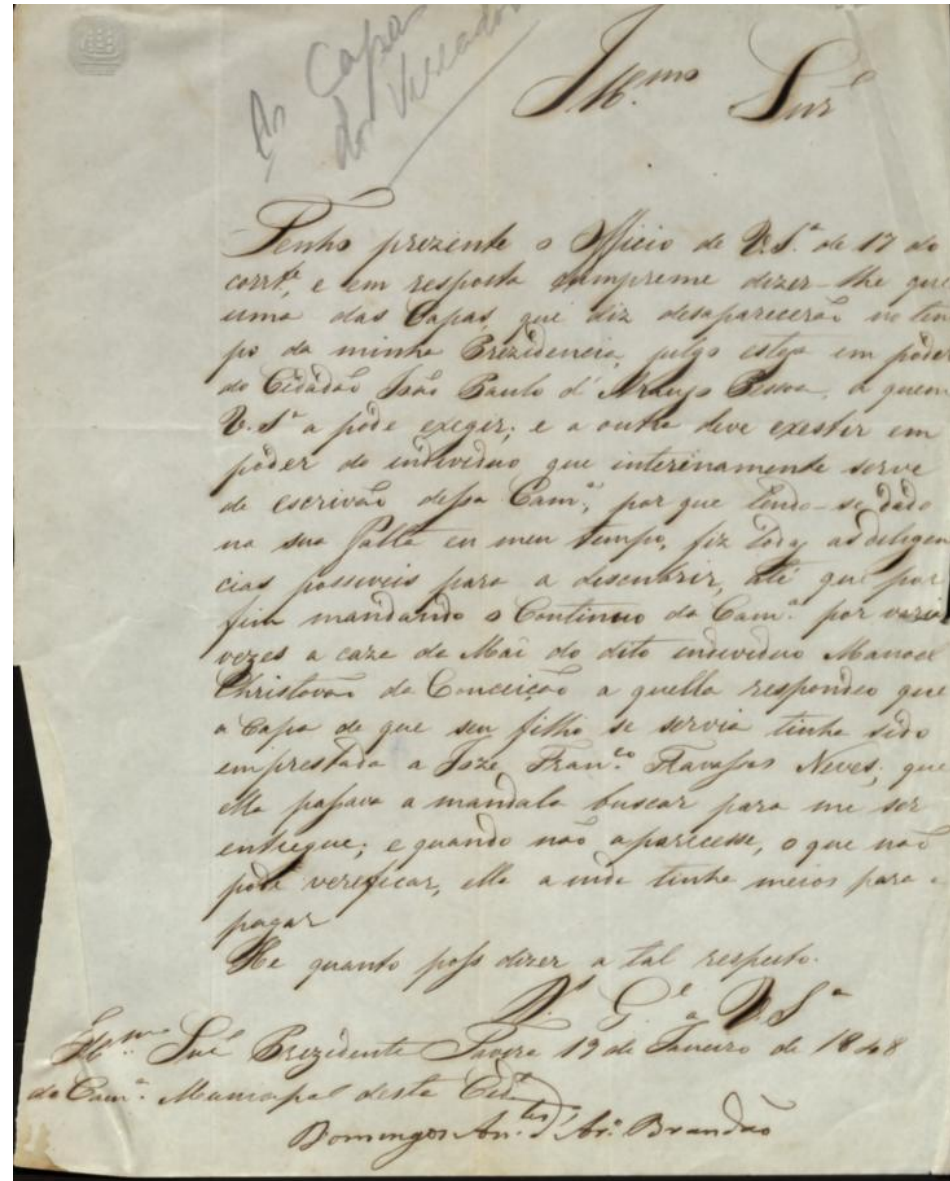 As Capas
dos Vereadores
Ill.mo Snr.
Tenho prezente o Officio de V. S.ª de 17 do
corr.te, e em resposta cumpreme dizer-lhe que
uma das Capas, que diz desaparecerão no tem
po da minha Prezidencia, julgo esteja em poder
do Cidadão João Paulo d'Araujo Pessoa, a quem
V. S.ª a póde exegir; e a outra deve exestir em
poder do individuo que interinamente serve
de escrivão dessa Cam.ª, por que tendo-se dado
na sua falta em meu tempo, fiz todas as deligen
cias possiveis para a descubrir, até que por
fim mandando o Continuo da Cam.ª por varias
vezes a caza da Mãi do dito individuo Manoel
Christovão da Conceição aquella respondeo que
a Capa de que seu filho se servia tinha sido
emprestada a Joze Fran.co Neves, que
ella passava a mandala buscar para me ser
entregue; e quando não aparecesse, o que não
pode vereficar, ella ainda tinha meios para a
pagar
He quanto posso dizer a tal respeito.
D.s G.e a V. S.ª
Ill.mo Snr. Prezidente Tavira 19 de Janeiro de 1848
da Cam.ª Municipal desta Cid.e
Domingos An.to d'Ar.º Brandão